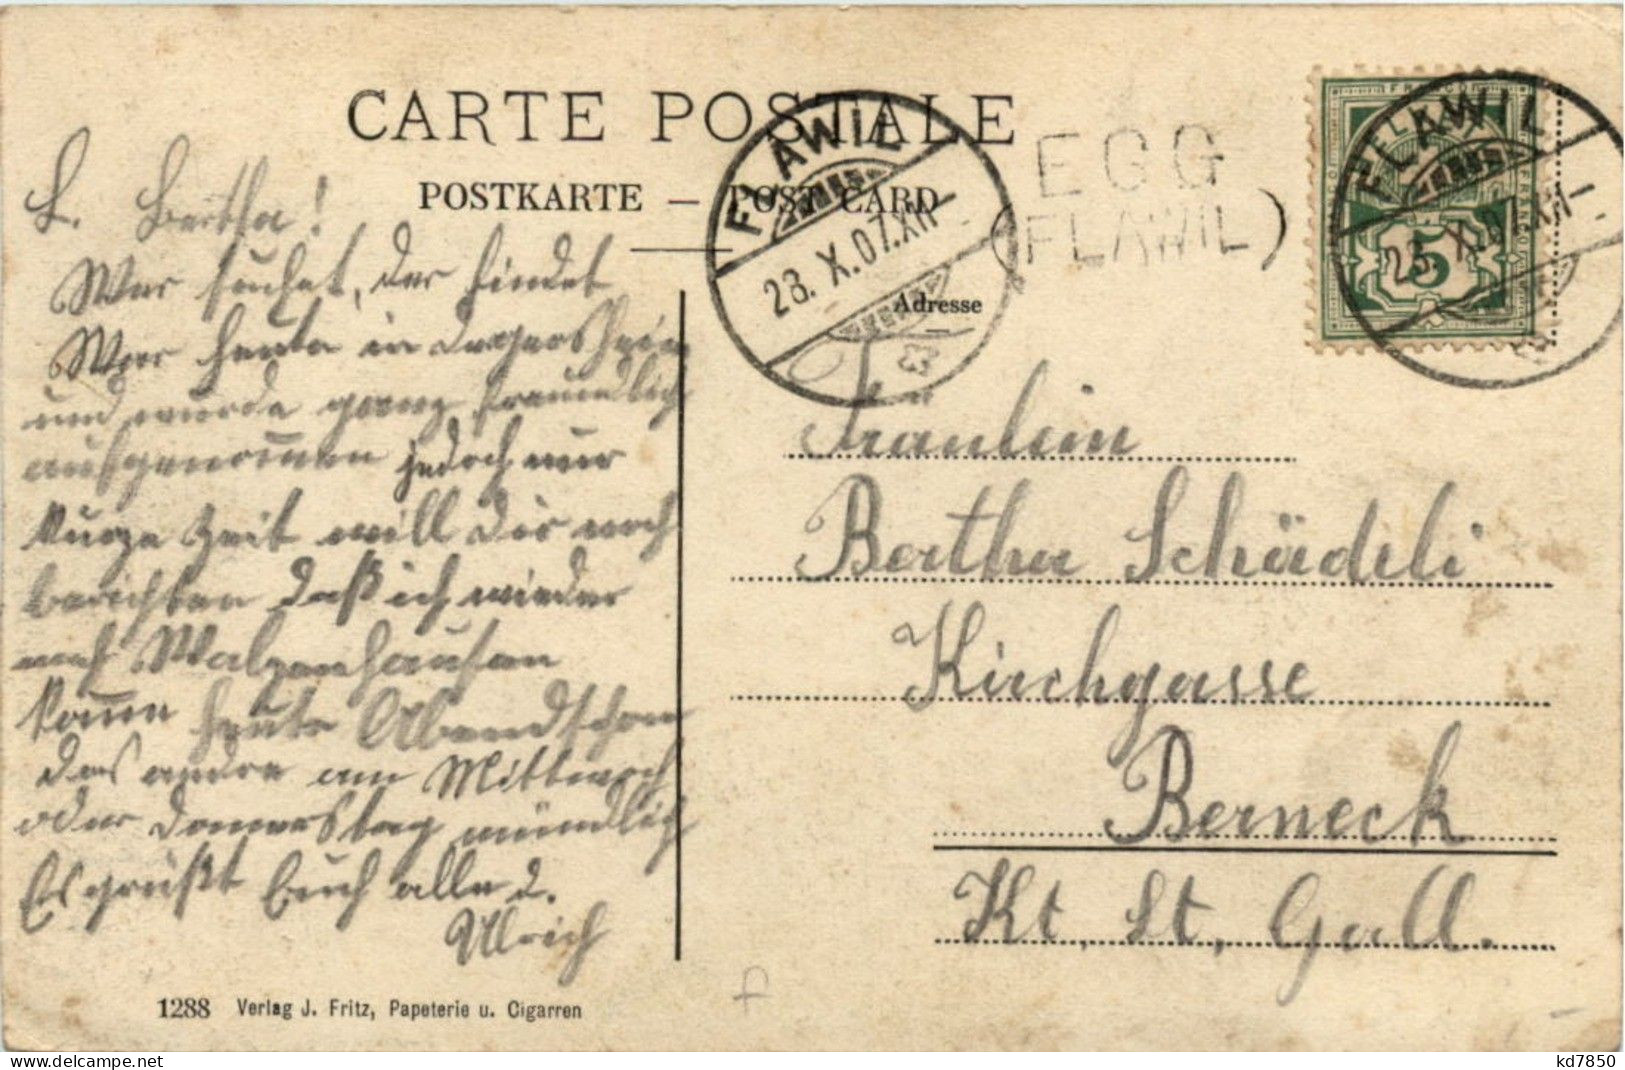 CARTE POSTALE
POSTKARTE — POST CARD
FLAWIL
23. X. 07. XII
EGG
(FLAWIL)
FLAWIL
23. X. 07. XII
FRANCO
5
Adresse
L. Bertha!
Wer suchet, der findet
War heute in Degersheim
und wurde ganz freundlich
aufgenom̅en jedoch nur
kurze Zeit will dir noch
berichten daß ich wieder
nach Walzenhausen
kom̅e heute Abend schon
das andre am Mittwoch
oder Donnerstag mündlich
Es grüßt Euch alle
Ulrich
Fräulein
Bertha Schädeli
Kirchgasse
Berneck
Kt. St. Gall.
1288 Verlag J. Fritz, Papeterie u. Cigarren
kd7850